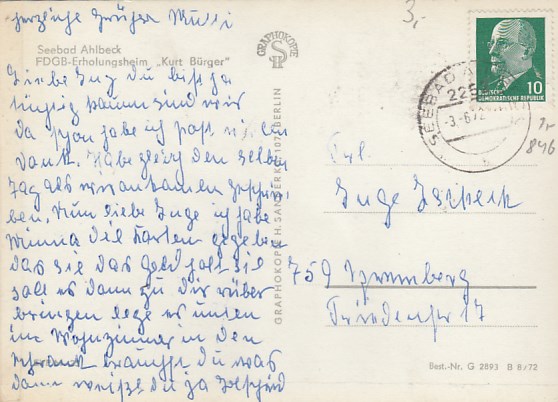 herzliche Grüße Mutti
Seebad Ahlbeck
FDGB-Erholungsheim „Kurt Bürger"
Liebe Inge du bist ja
tüchtig kaum sind wir
da schon habe ich post vielen
Dank. Habe gleich den selben
Tag als wir ankamen geschrie
ben. Nun liebe Inge ich habe
Minna die Karten gegeben
das sie das Geld holt sie
soll es dann zu dir rüber
bringen lege es unten
im Wohnzimmer in den
schrank brauchst du was
dann weißt du ja Bescheid
GRAPHOKOPIE
GRAPHOKOPIE H. SANDER KG · 107 BERLIN
3,-
SEEBAD A
225
-3.-6.72
DEUTSCHE
DEMOKRATISCHE REPUBLIK
10
846
Frl.
Inge
759 Spremberg
17
Best.-Nr. G 2893 B 8/72